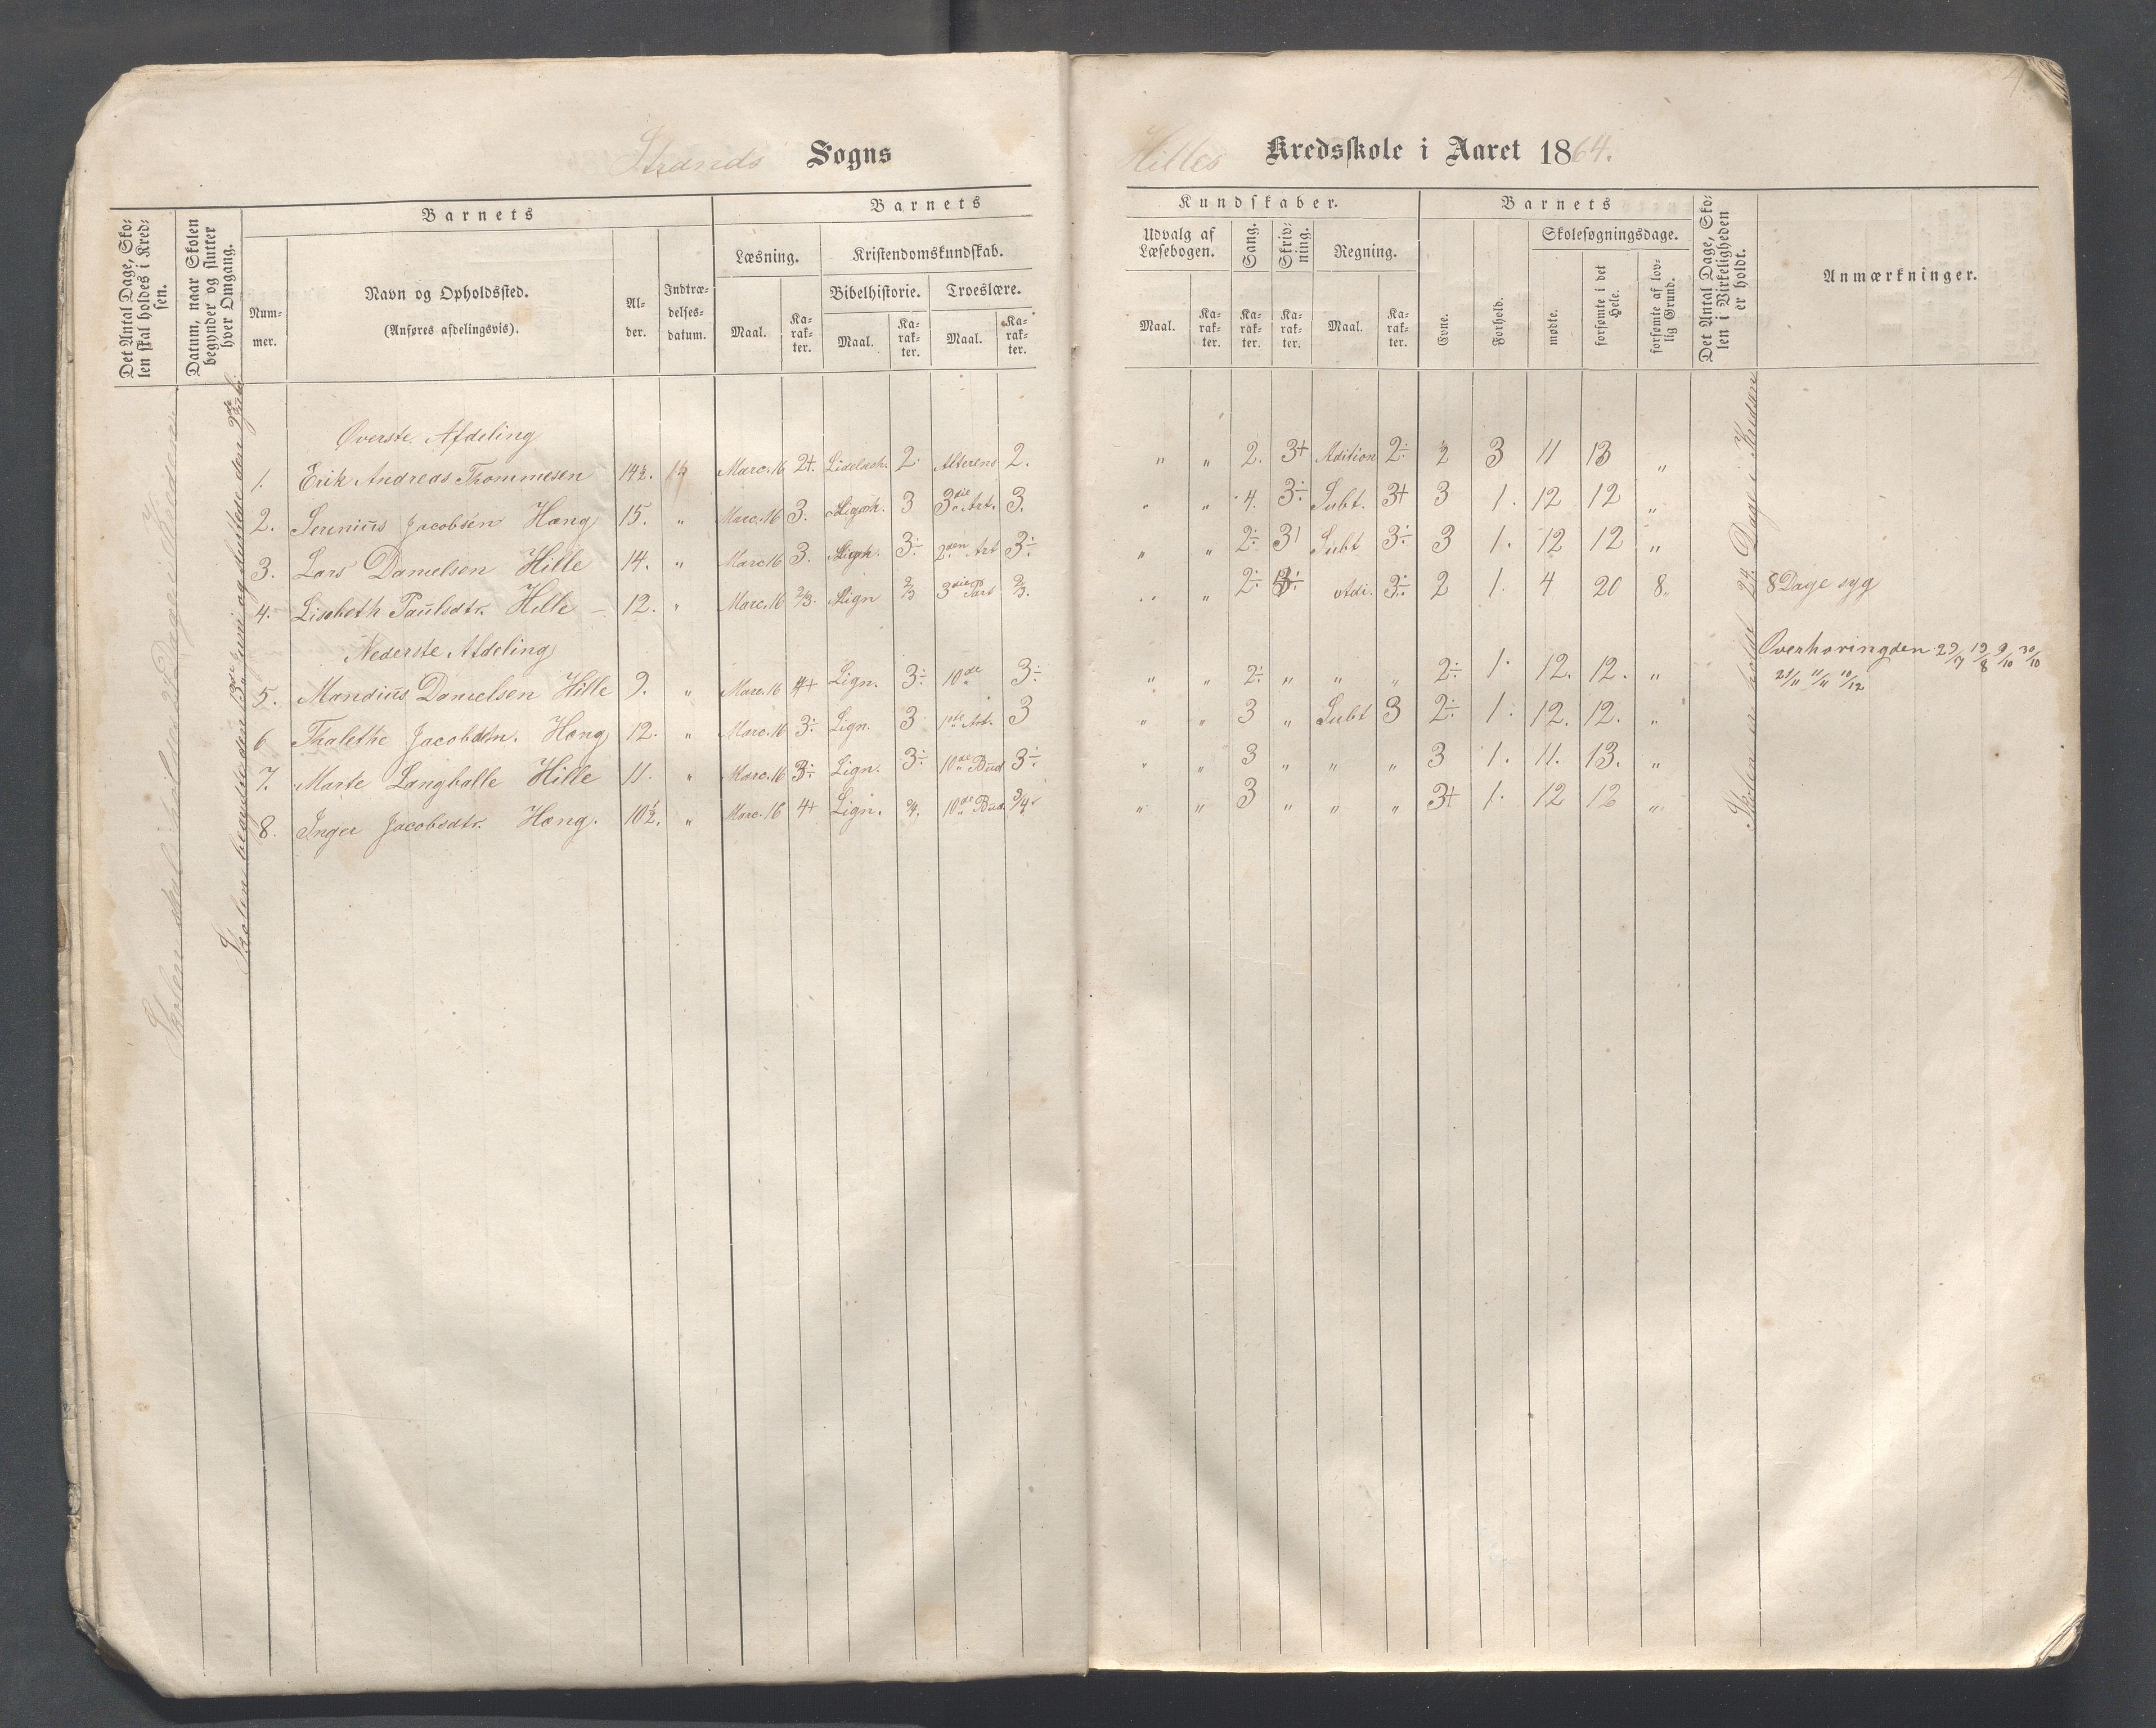 Strands Sogns
Hilles Kredsskole i Aaret 1864.
Det Antal Dage, Sko-
len skal holdes i Kred-
sen.
Datum, naar Skolen
begynder og slutter
hver Omgang.
Barnets
Num-
mer.
Navn og Opholdssted.
(Anføres afdelingsvis).
Al-
der.
Indtræ-
delses-
datum.
Barnets
Læsning.
Maal.
Ka-
rak-
ter.
Kristendomskundskab.
Bibelhistorie.
Maal.
Ka-
rak-
ter.
Troeslære.
Maal.
Ka-
rak-
ter.
Kundskaber.
Udvalg af
Læsebogen.
Maal.
Ka-
rak-
ter.
Sang.
Ka-
rak-
ter.
Skriv-
ning.
Ka-
rak-
ter.
Regning.
Maal.
Ka-
rak-
ter.
Barnets
Evne.
Forhold.
Skolesøgningsdage.
mødte.
forsømte i det
Hele.
forsømte af lov-
lig Grund.
Det Antal Dage, Sko-
len i Virkeligheden
er holdt.
Anmærkninger.
Skolen skal holdes 24 Dage i Kredsen
Skolen begyndte den 13de Juni og sluttede den
Øverste Afdeling
1. Erik Andreas Thommesen 14½. Marc. 16 2+. 2. Alterens 2. " " 2. 3+ Adition 2÷ 2 3 11 13 "
2. Serenius Jacobsen Hæng 15. " Marc. 16 3. 3 3die Art. 3. " " 4. 3÷ Subt. 3+ 3 1. 12 12 "
3. Lars Danielsen Hille 14. " Marc 16 3. 3÷ 2den Art 3÷ " " 2÷ 3 Subt 3÷ 3 1. 12 12 "
4. Lisebeth Paulsdtr. Hille 12. " Marc. 16 2/3. Lign 2/3 3die Part 2/3. " " 2÷ 3÷ Adi. 3÷ 2 1. 4 20 8 " 8 Dage syg
Nederste Afdeling
5. Mandius Danielsen Hille 9. " Marc. 16 4+ Lign. 3÷ 10de 3÷ " " 2÷ " " " 2÷ 1. 12. 12. "
6 Thalethe Jacobsdtr. Hæng 12. " Marc. 16 3÷ Lign. 3 1ste Art. 3 " " 3 " Subt 3 2÷ 1. 12. 12. "
7. Marte Langballe Hille 11. " Marc. 16 3÷ Lign. 3÷ 10de Bud 3÷ " " 3 " " " 3 1. 11. 13. "
8. Inger Jacobsdtr. Hæng. 10½. " Marc. 16 4+ Lign. 10de Bud 3/4 " " 3 " " " 3+ 1. 12 12 "
Skolen er holdt 24 Dage i Kredsen
Overhøringden 29/7 19/8 9/10 30/10
21/11 11/11 10/12